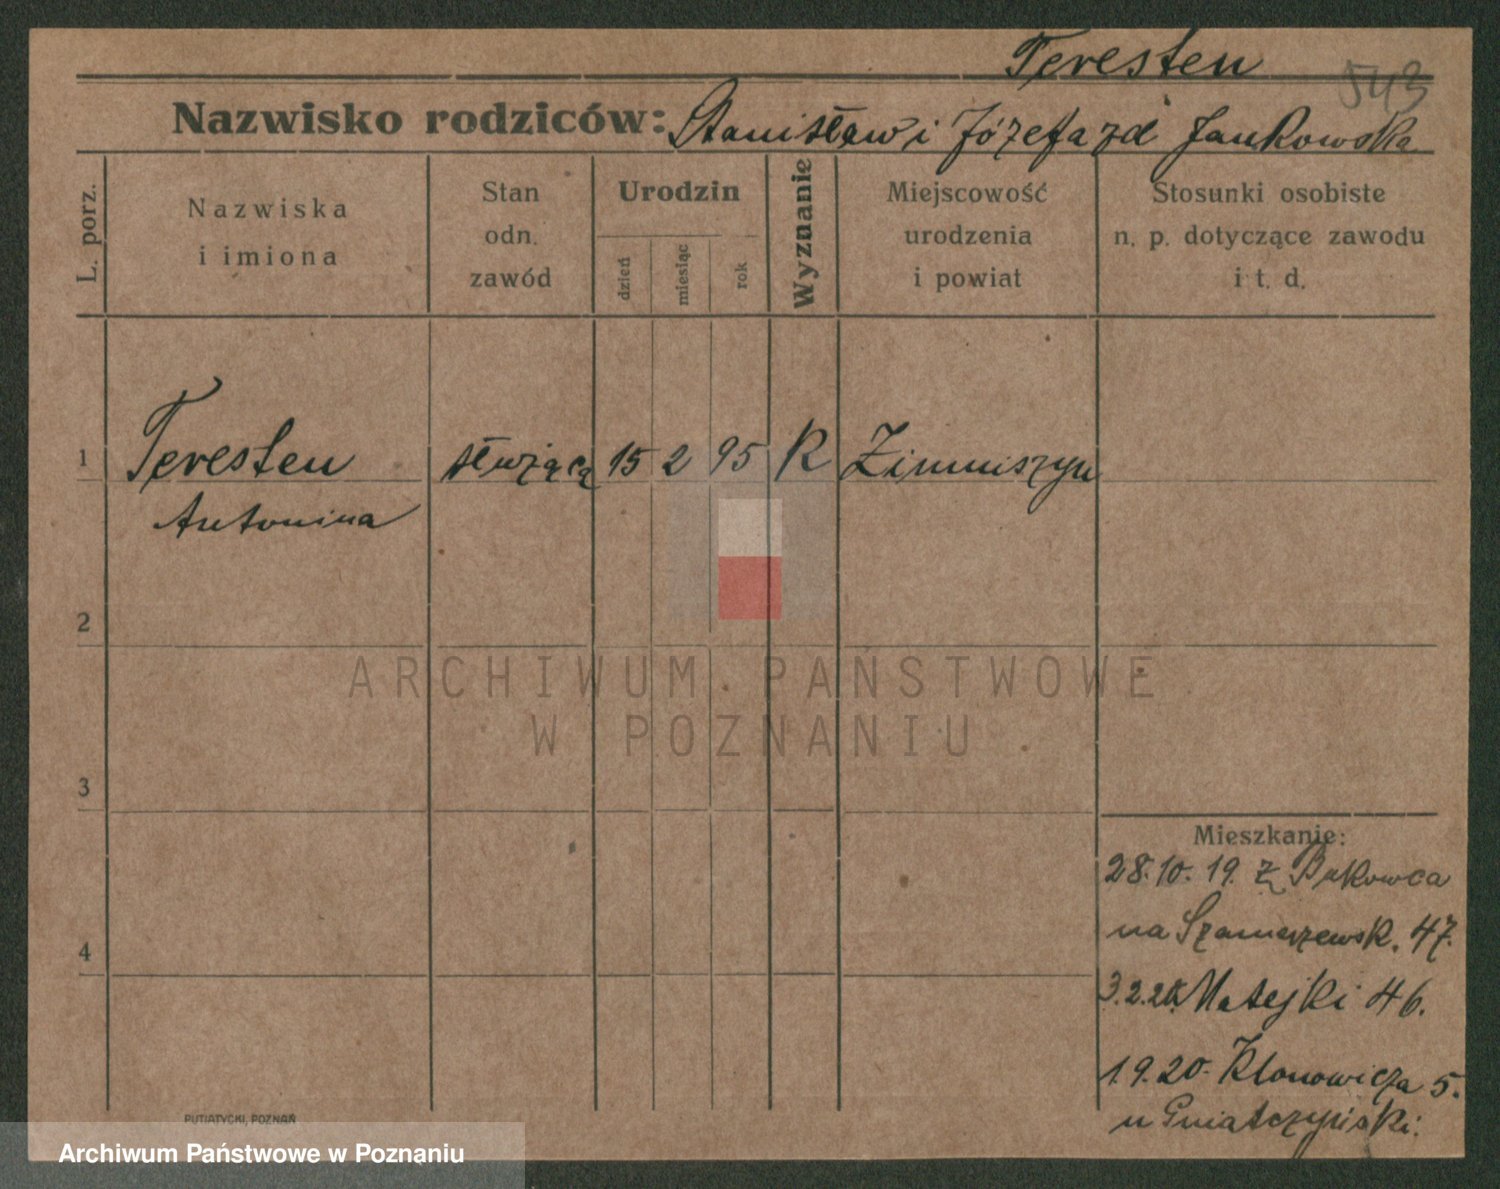 Teresten
543
Nazwisko rodziców: Stanisław i Józefa zd Jankowska
L. porz.
Nazwiska
i imiona
Stan
odn.
zawód
Urodzin
dzień
miesiąc
rok
Wyznanie
Miejscowość
urodzenia
i powiat
Stosunki osobiste
n. p. dotyczące zawodu
i t. d.
1
Teresten
Antonina
służącą
15
2
95
K
Zimniszyn
2
3
4
ARCHIWUM PAŃSTWOWE
W POZNANIU
Mieszkanie:
28.10.19. z Bukowca
na Szamarzewsk. 47.
3.2.20 Matejki 46.
1.9.20. Klonowicza 5.
u
PUTIATYCKI, POZNAŃ
Archiwum Państwowe w Poznaniu